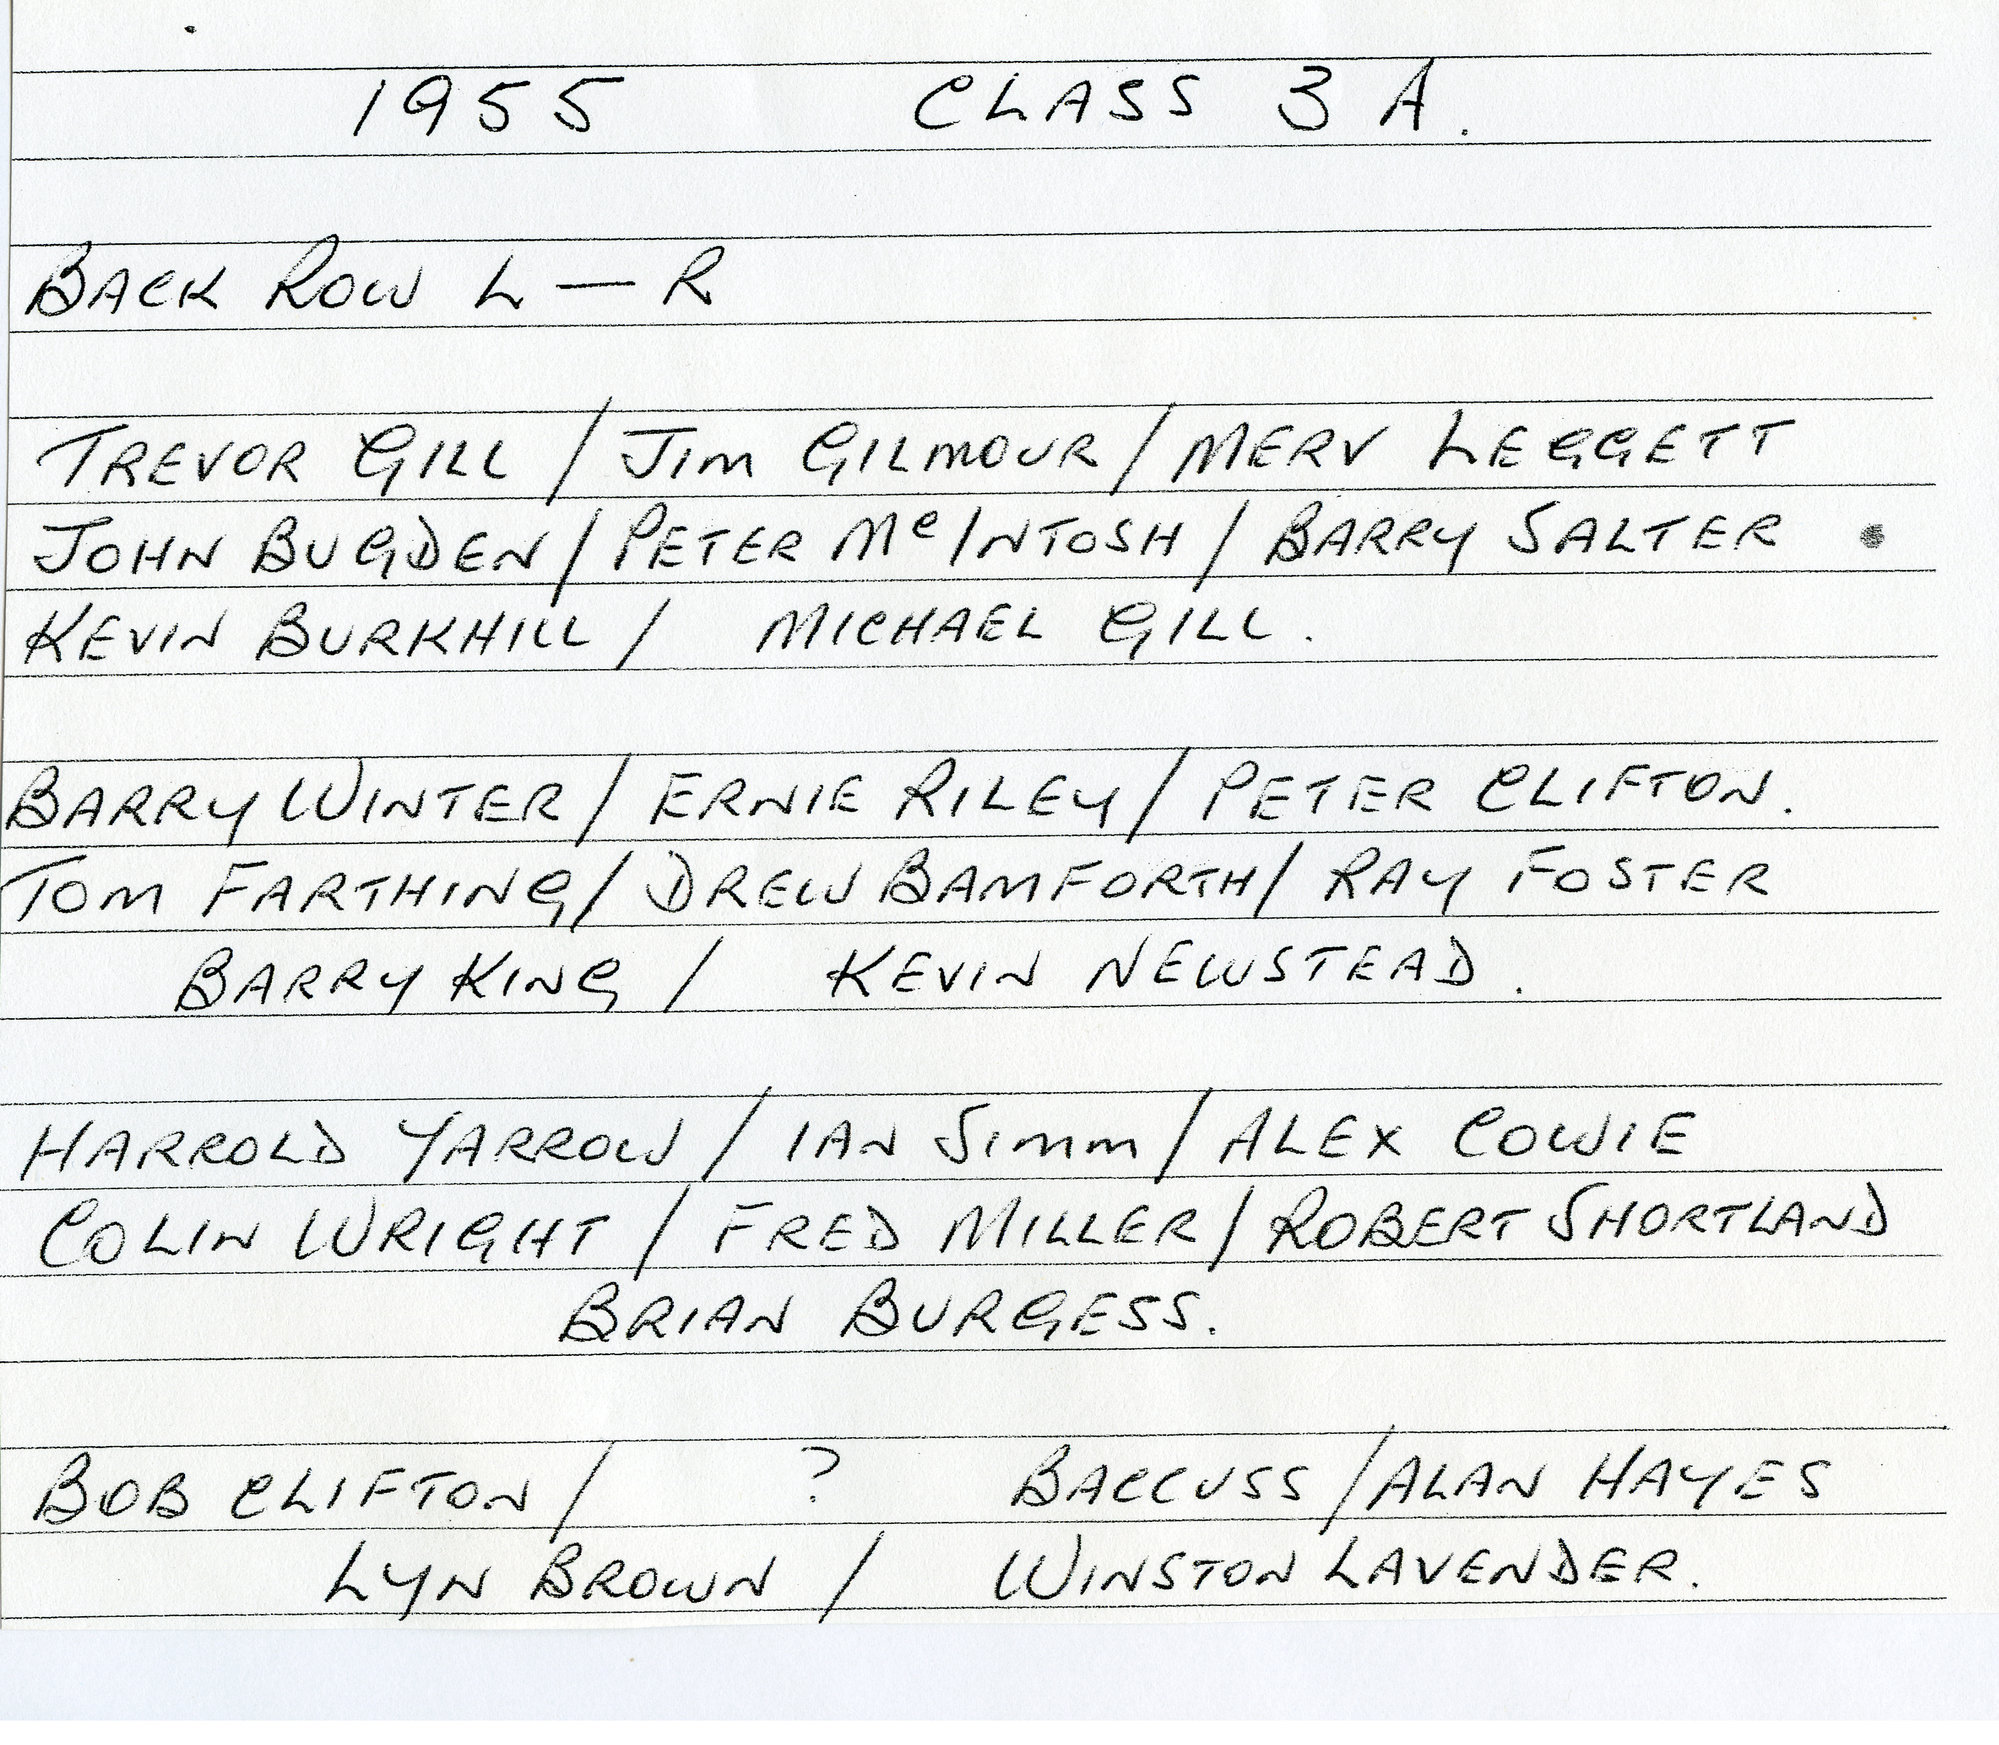 1955 CLASS 3A.
BACK ROW L — R
TREVOR GILL / JIM GILMOUR / MERV LEGGETT
JOHN BUGDEN / PETER McINTOSH / BARRY SALTER
KEVIN BURKHILL / MICHAEL GILL.
BARRY WINTER / ERNIE RILEY / PETER CLIFTON.
TOM FARTHING / DREW BAMFORTH / RAY FOSTER
BARRY KING / KEVIN NEWSTEAD.
HARROLD YARROW / IAN SIMM / ALEX COWIE
COLIN WRIGHT / FRED MILLER / ROBERT SHORTLAND
BRIAN BURGESS.
BOB CLIFTON / ? BACCUSS / ALAN HAYES
LYN BROWN / WINSTON LAVENDER.